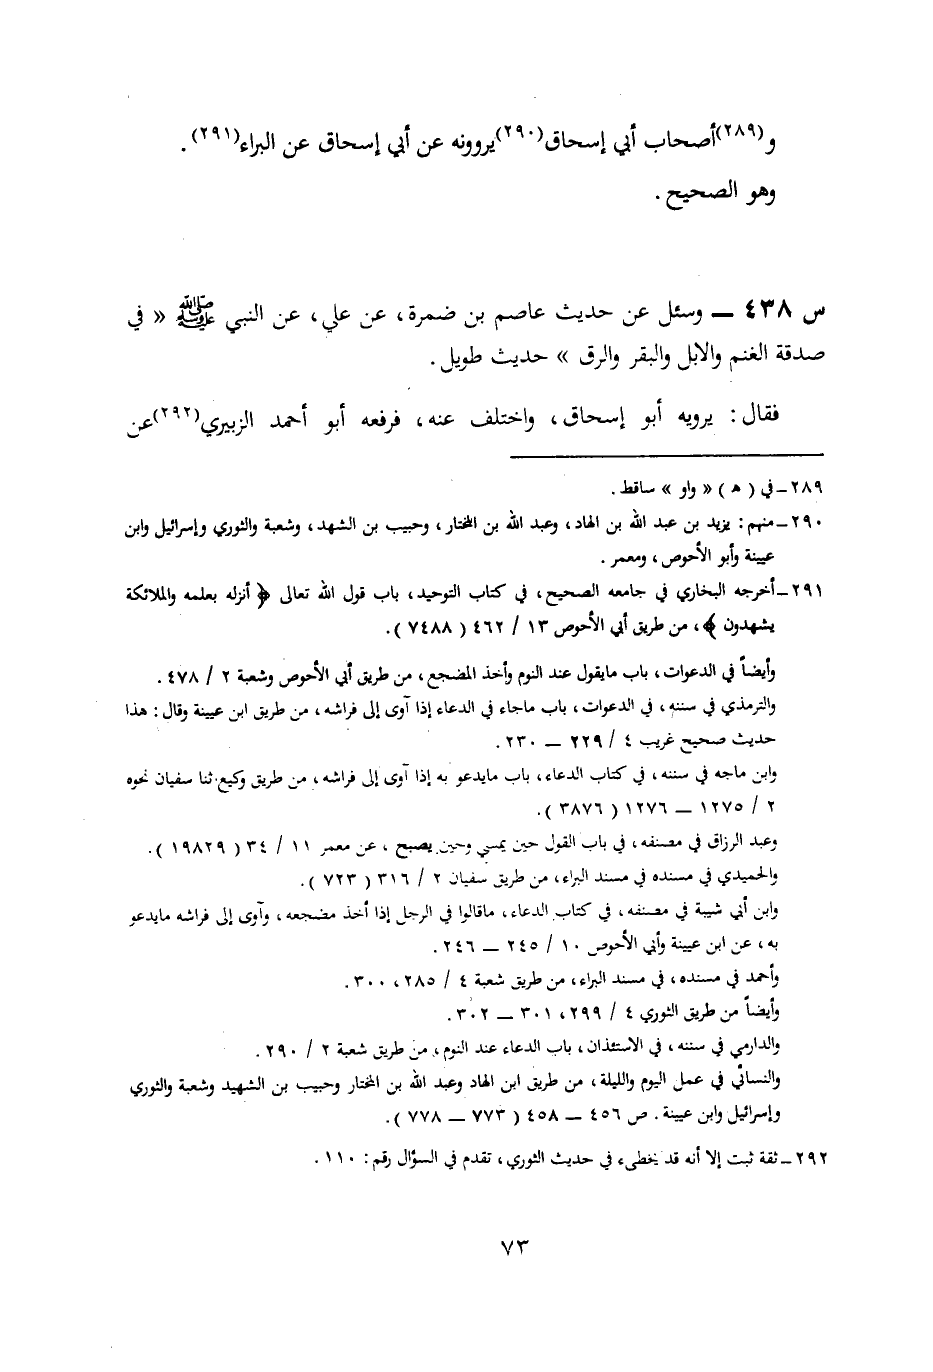 و(٢٨٩)أصحاب أبي إسحاق(٢٩٠)يروونه عن أبي إسحاق عن البراء(٢٩١) .
وهو الصحيح .
س ٤٣٨ ــ وسئل عن حديث عاصم بن ضمرة، عن علي، عن النبي ﷺ « في
صدقة الغنم والابل والبقر والرق » حديث طويل .
فقال : يرويه أبو إسحاق، واختلف عنه، فرفعه أبو أحمد الزبيري(٢٩٢)عن
٢٨٩ــ في ( هـ ) « واو » ساقط .
٢٩٠ــ منهم : يزيد بن عبد الله بن الهاد، وعبد الله بن المختار، وحبيب بن الشهد، وشعبة والثوري وإسرائيل وابن
عيينة وأبو الأحوص، ومعمر .
٢٩١ــ أخرجه البخاري في جامعه الصحيح، في كتاب التوحيد، باب قول الله تعالى ﴿ أنزله بعلمه والملائكة
يشهدون ﴾، من طريق أبي الأحوص ١٣ / ٤٦٢ ( ٧٤٨٨ ).
وأيضاً في الدعوات، باب مايقول عند النوم وأخذ المضجع، من طريق أبي الأحوص وشعبة ٢ / ٤٧٨ .
والترمذي في سننه، في الدعوات، باب ماجاء في الدعاء إذا آوى إلى فراشه، من طريق ابن عيينة وقال : هذا
حديث صحيح غريب ٤ / ٢٢٩ ــ ٢٣٠ .
وابن ماجه في سننه، في كتاب الدعاء، باب مايدعو به إذا آوى إلى فراشه، من طريق وكيع ثنا سفيان نحوه
٢ / ١٢٧٥ ــ ١٢٧٦ ( ٣٨٧٦ ).
وعبد الرزاق في مصنفه، في باب القول حين يمسي وحين يصبح، عن معمر ١١ / ٣٤ ( ١٩٨٢٩ ).
والحميدي في مسنده في مسند البراء، من طريق سفيان ٢ / ٣١٦ ( ٧٢٣ ).
وابن أبي شيبة في مصنفه، في كتاب الدعاء، ماقالوا في الرجل إذا أخذ مضجعه، وآوى إلى فراشه مايدعو
به، عن ابن عيينة وأبي الأحوص ١٠ / ٢٤٥ ــ ٢٤٦ .
وأحمد في مسنده، في مسند البراء، من طريق شعبة ٤ / ٢٨٥، ٣٠٠ .
وأيضاً من طريق الثوري ٤ / ٢٩٩، ٣٠١ ــ ٣٠٢ .
والدارمي في سننه، في الاستئذان، باب الدعاء عند النوم، من طريق شعبة ٢ / ٢٩٠ .
والنسائي في عمل اليوم والليلة، من طريق ابن الهاد وعبد الله بن المختار وحبيب بن الشهيد وشعبة والثوري
وإسرائيل وابن عيينة . ص ٤٥٦ ــ ٤٥٨ ( ٧٧٣ ــ ٧٧٨ ).
٢٩٢ــ ثقة ثبت إلا أنه قد يخطىء في حديث الثوري، تقدم في السؤال رقم : ١١٠ .
٧٣